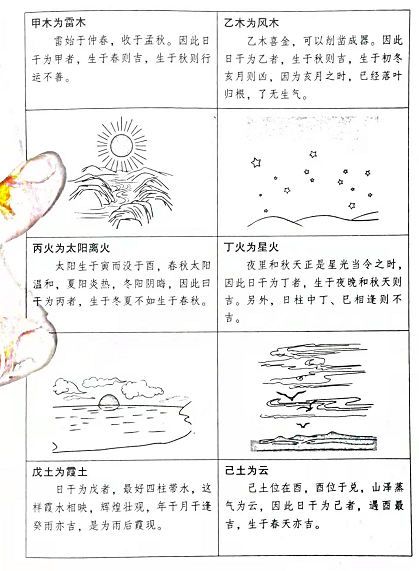 甲木为雷木
雷始于仲春，收于孟秋。因此日
干为甲者，生于春则吉，生于秋则行
运不善。
乙木为风木
乙木喜金，可以削凿成器。因此
日干为乙者，生于秋则吉，生于初冬
亥月则凶，因为亥月之时，已经落叶
归根，了无生气。
丙火为太阳离火
太阳生于寅而没于酉，春秋太阳
温和，夏阳炎热，冬阳阴晦，因此日
干为丙者，生于冬夏不如生于春秋。
丁火为星火
夜里和秋天正是星光当令之时，
因此日干为丁者，生于夜晚和秋天则
吉。另外，日柱中丁、巳相逢则不
吉。
戊土为霞土
日干为戊者，最好四柱带水，这
样霞水相映，辉煌壮观，年干月干逢
癸雨亦吉，是为雨后霞现。
己土为云
己土位在酉，酉位于兑，山泽蒸
气为云，因此日干为己者，遇酉最
吉，生于春天亦吉。